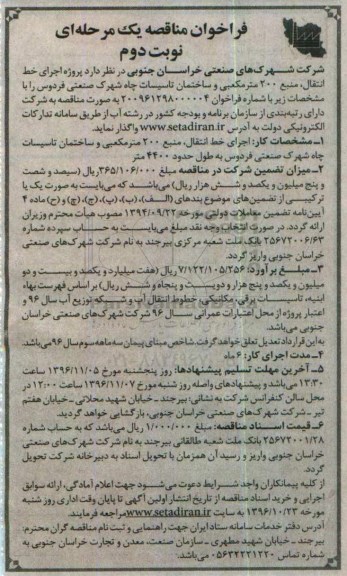 فراخوان مناقصه یک مرحله‌ای
نوبت دوم
شرکت شهرک‌های صنعتی خراسان جنوبی در نظر دارد پروژه اجرای خط
انتقال، منبع ۲۰۰ مترمکعبی و ساختمان تاسیسات چاه شهرک صنعتی فردوس را با
مشخصات زیر با شماره فراخوان ۲۰۰۹۶۱۲۹۸۰۰۰۰۰۴ به صورت مناقصه به شرکت
دارای رتبه‌بندی از سازمان برنامه و بودجه کشور در رشته آب از طریق سامانه تدارکات
الکترونیکی دولت به آدرس www.setadiran.ir واگذار نماید.
۱ـ مشخصات کار: اجرای خط انتقال، منبع ۲۰۰ مترمکعبی و ساختمان تاسیسات
چاه شهرک صنعتی فردوس به طول حدود ۴۴۰۰ متر
۲ـ میزان تضمین شرکت در مناقصه مبلغ ۳۶۵/۱۰۶/۰۰۰ ریال (سیصد و شصت
و پنج میلیون و یکصد و شش هزار ریال) می‌باشد که می‌بایست به صورت یک یا
ترکیبی از تضمین‌های موضوع بندهای (الف)، (ب)، (پ)، (ج)، (چ) و (ح) ماده ۴
آیین‌نامه تضمین معاملات دولتی مورخه ۱۳۹۴/۰۹/۲۲ مصوب هیأت محترم وزیران
ارائه گردد. در صورت انتخاب وجه نقد مبلغ می‌بایست به حساب سپرده شماره
۲۵۶۷۲۰۰۶/۶۳ بانک ملت شعبه مرکزی بیرجند به نام شرکت شهرک‌های صنعتی
خراسان جنوبی واریز گردد.
۳ـ مبلغ برآورد: ۷/۱۲۲/۱۰۵/۲۵۶ ریال (هفت میلیارد و یکصد و بیست و دو
میلیون و یکصد و پنج هزار و دویست و پنجاه و شش ریال) بر اساس فهرست بهاء
ابنیه، تاسیسات برقی، مکانیکی، خطوط انتقال آب و شبکه توزیع آب سال ۹۶ و
اعتبار پروژه از محل اعتبارات عمرانی سال ۹۶ شرکت شهرک‌های صنعتی خراسان
جنوبی می‌باشد.
به این قرارداد تعدیل تعلق خواهد گرفت. شاخص مبنای پیمان سه ماهه سوم سال ۹۶ می‌باشد.
۴ـ مدت اجرای کار: ۶ ماه
۵ـ آخرین مهلت تسلیم پیشنهادها: روز پنجشنبه مورخ ۱۳۹۶/۱۱/۰۵ ساعت
۱۳:۳۰ می‌باشد و پیشنهادهای واصله روز شنبه مورخ ۱۳۹۶/۱۱/۰۷ ساعت ۱۲:۰۰ در
محل سالن کنفرانس شرکت به نشانی: بیرجند ـ خیابان شهید محلاتی ـ خیابان هفتم
تیر ـ شرکت شهرک‌های صنعتی خراسان جنوبی، بازگشایی خواهد گردید.
۶ـ قیمت اسناد مناقصه: مبلغ ۱/۰۰۰/۰۰۰ ریال می‌باشد که به حساب شماره
۲۵۶۷۲۰۰۱/۲۸ بانک ملت شعبه طالقانی بیرجند به نام شرکت شهرک‌های صنعتی
خراسان جنوبی واریز و رسید آن همزمان با تحویل اسناد به دبیرخانه شرکت تحویل
گردد.
از کلیه پیمانکاران واجد شرایط دعوت می‌شود جهت اعلام آمادگی، ارائه سوابق
اجرایی و خرید اسناد مناقصه از تاریخ انتشار اولین آگهی تا پایان وقت اداری روز شنبه
مورخه ۱۳۹۶/۱۰/۲۳ به سایت www.setadiran.ir مراجعه فرمایند.
آدرس دفتر خدمات سامانه ستاد ایران جهت راهنمایی و ثبت نام مناقصه گران محترم:
بیرجند ـ خیابان شهید مطهری ـ سازمان صنعت، معدن و تجارت خراسان جنوبی به
شماره تماس ۰۵۶۳۲۲۲۱۲۲۰ می‌باشد.